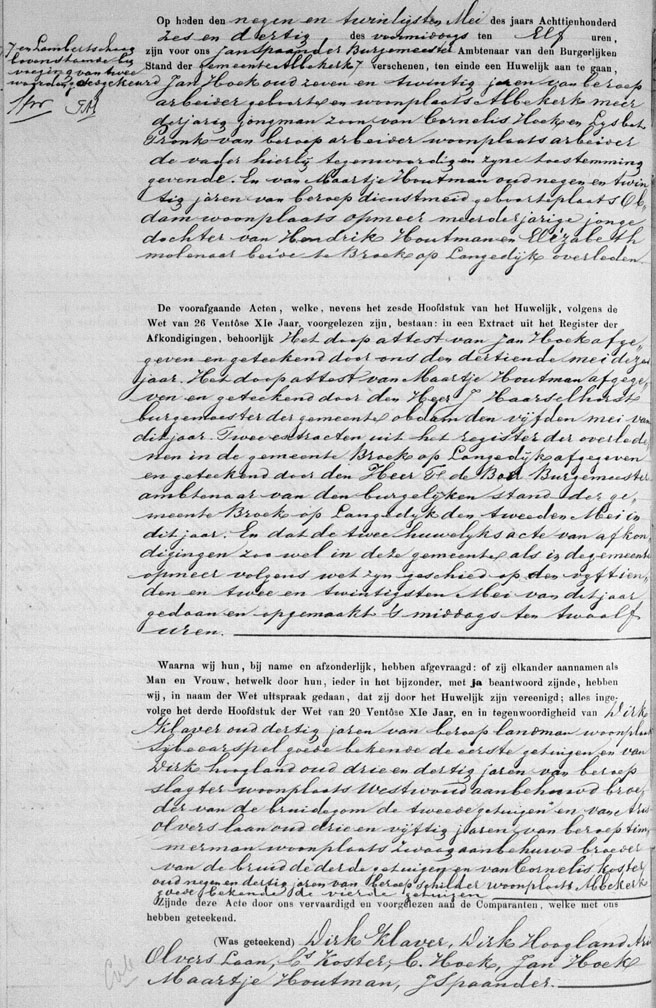 Op heden den negen en twintigsten Mei des jaars Achttienhonderd
zes en dertig, des voormiddags ten Elf uren,
zijn voor ons Jan Spaander Burgemeester Ambtenaar van den Burgerlijken
Stand der gemeente Abbekerk verschenen, ten einde een Huwelijk aan te gaan,
en Lambertschaag
bovenstaande bij
voeging van twee
woorden goedgekeurd
Jan Hoek oud zeven en twintig jaren van beroep
arbeider geboorte en woonplaats Abbekerk meer
derjarig jongman zoon van Cornelis Hoek en Lysbet
Pronk van beroep arbeider woonplaats arbeider
de vader hierbij tegenwoordig en zyne toestemming
gevende. En van Maartje Houtman oud negen en twin
tig jaren van beroep dienstmeid geboorteplaats Ob„
dam woonplaats opmeer meerderjarige jonge
dochter van Hendrik Houtman en Elizabeth
molenaar beide te Broek op Langedijk overleden
De voorafgaande Acten, welke, nevens het zesde Hoofdstuk van het Huwelijk, volgens de
Wet van 26 Ventôse XIe Jaar, voorgelezen zijn, bestaan: in een Extract uit het Register der
Afkondigingen, behoorlijk Het doop attest van Jan Hoek afge„
geven en geteekend door ons den dertiende mei dezes
jaar. Het doop attest van Maartje Houtman afgege„
ven en geteekend door den Heer J Haarselhorst
burgemeester der gemeente obdam den vijfden mei van
dit jaar. Twee extracten uit het register der overlede„
nen in de gemeente Broek op Langedijk afgegeven
en geteekend door den Heer de Boer Burgemeester
ambtenaar van den burgelijken stand der ge„
meente Broek op Langedijk den tweeden Mei in
dit jaar. En dat de twee huwelyks acte van afkon
digingen zoo wel in deze gemeente als in de gemeente
opmeer volgens wet zyn geschied op den vyftien„
den en twee en twintigsten Mei van dit jaar
gedaan en opgemaakt 's middags ten twaalf
uren.
Waarna wij hun, bij name en afzonderlijk, hebben afgevraagd: of zij elkander aannamen als
Man en Vrouw, hetwelk door hun, ieder in het bijzonder, met ja beantwoord zijnde, hebben
wij, in naam der Wet uitspraak gedaan, dat zij door het Huwelijk zijn vereenigd; alles inge-
volge het derde Hoofdstuk der Wet van 20 Ventôse XIe Jaar, en in tegenwoordigheid van Dirk
Klaver oud dertig jaren van beroep landman woonplaats
Sijbecarspel goede bekende de eerste getuigen en van
Dirk hoogland oud drie en dertig jaren van beroep
slagter woonplaats Westwoud aanbehuwd broe„
der van de bruidegom de tweede getuigen en van Aris
olvers laan oud drie en vijftig jaren van beroep tim„
merman woonplaats Zwaag aanbehuwd broeder
van de bruid de derde getuigen en van Cornelis koster
oud negen en dertig jaren van beroep schilder woonplaats Abbekerk
goede bekende de vierde getuigen
Zijnde deze Acte door ons vervaardigd en voorgelezen aan de Comparanten, welke met ons
hebben geteekend.
(Was geteekend) Dirk Klaver, Dirk Hoogland Aris
Olvers Laan, Cs Koster, C. Hoek, Jan Hoek
Maartje Houtman, J Spaander.